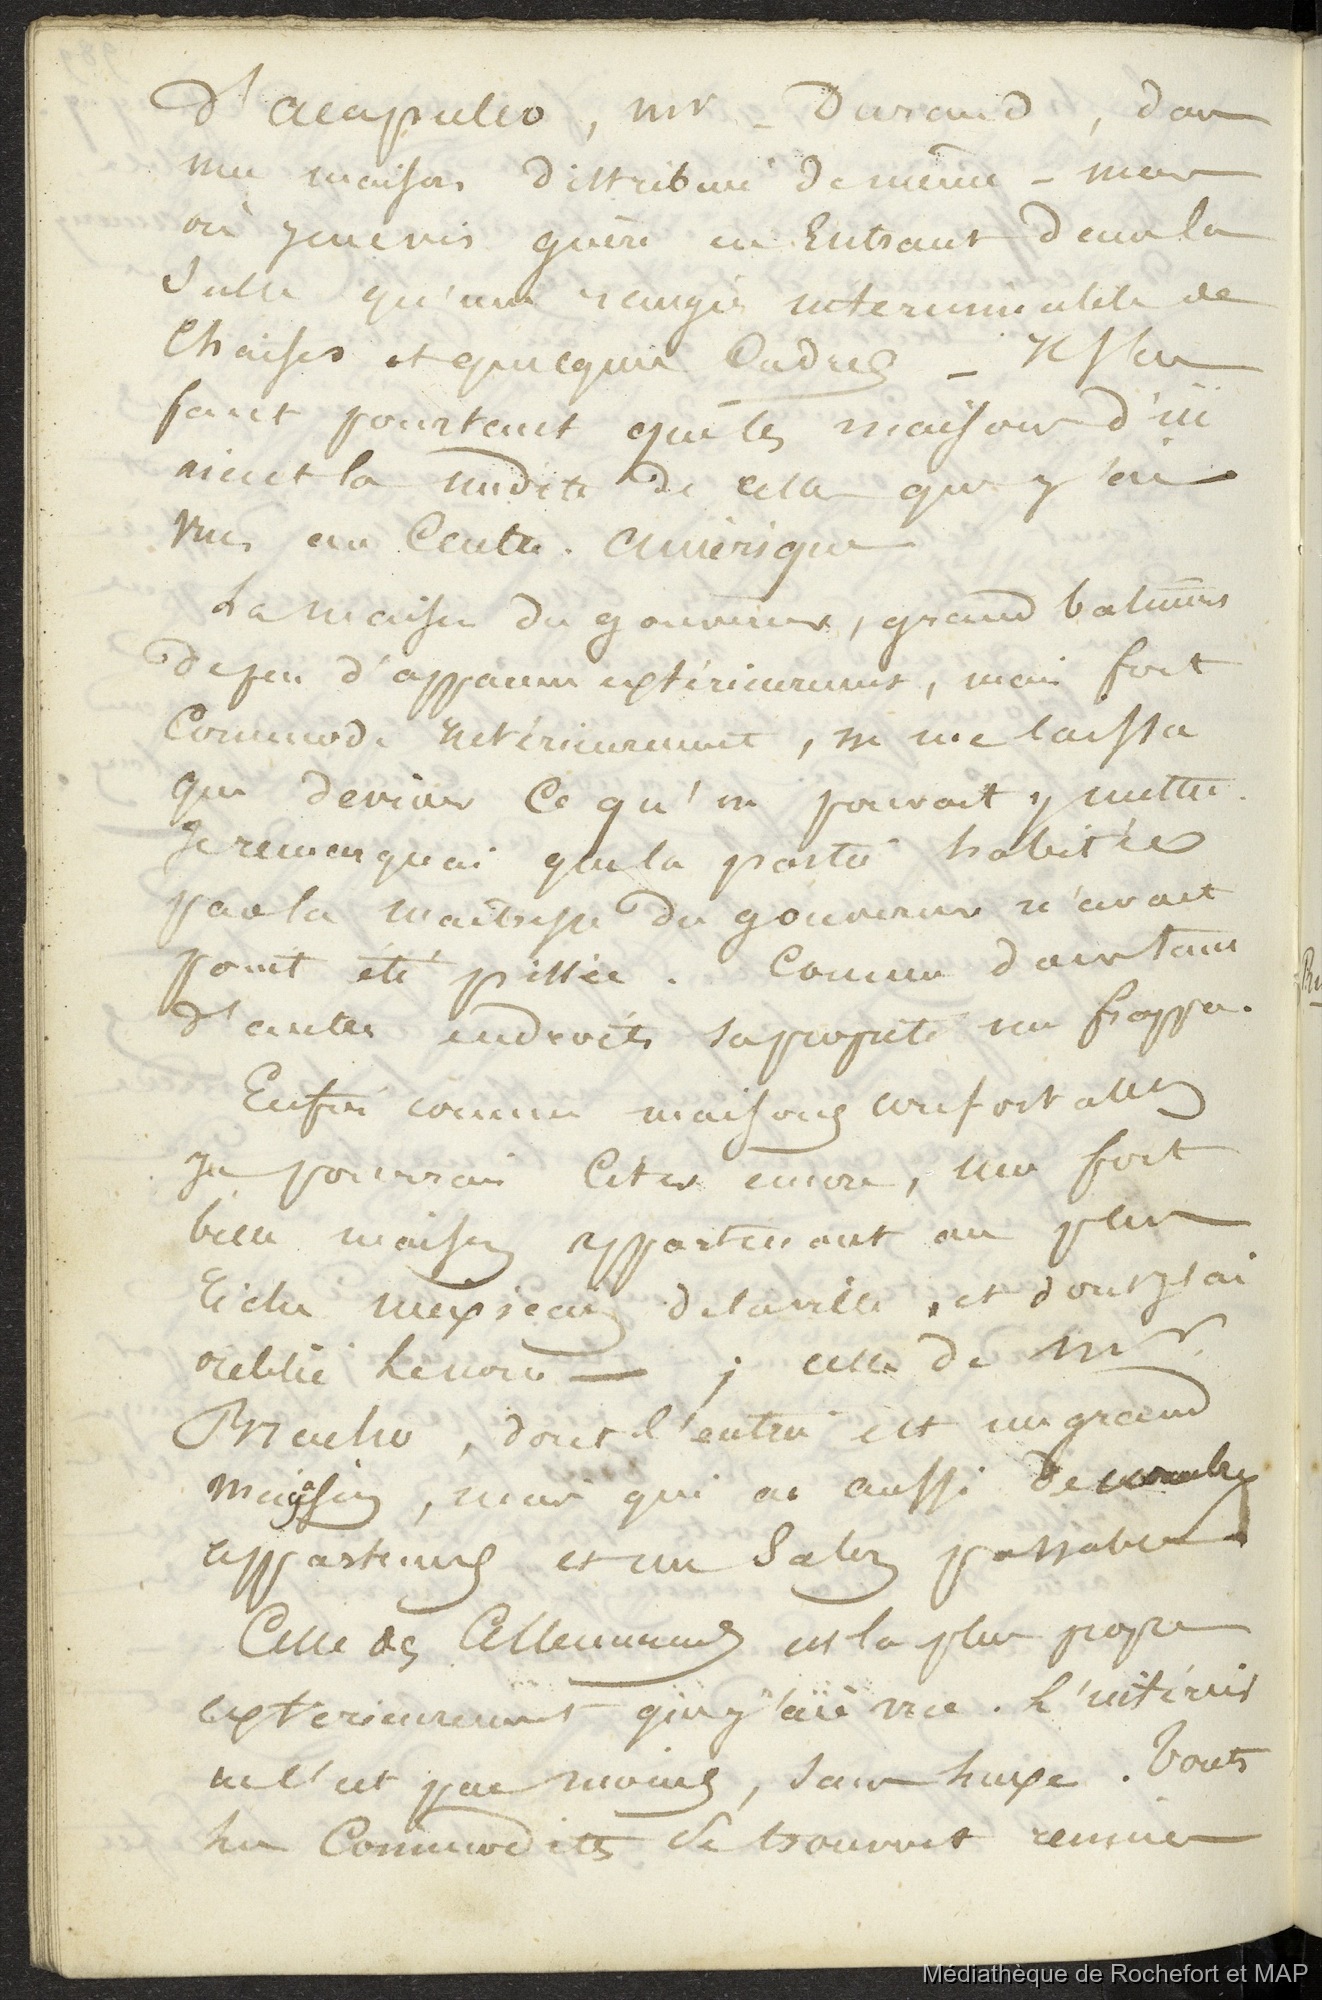 d'acapulco, mr - Durand, dans
une maison distribuée de même - mais
où je ne vis guère en Entrant dans la
Salle qu'une rangée interminable de
Chaises et quelques Cadres - Il s'en
faut pourtant que les maisons d'ici
aient la nudité de celles que j'ai
vues au Centre. Amérique
La maison du gouverneur, grand batiment
de peu d'apparence extérieurement, mais fort
Commode intérieurement, ne me laissa
que deviner Ce qu'on pouvait y mettre.
Je remarquai que la partie habitée
par la maitresse du gouverneur n'avait
point été pillée. Comme dans tant
d'autres endroits sa propreté me frappa.
Enfin comme maisons confortables
Je pourrais Citer encore, une fort
belle maison appartenant au plus
riche mexicain de la ville, et dont j'ai
oublié le nom - ; celle de Mr.
, dont l'entrée est un grand
magasin, mais qui a aussi de nombreux
appartements et un Salon passable
Celle des Allemands est la plus propre
extérieurement que j'aie vue. L'intérieur
ne l'est pas moins, sans luxe. Toutes
les Commodités se trouvent réunies
Médiathèque de Rochefort et MAP